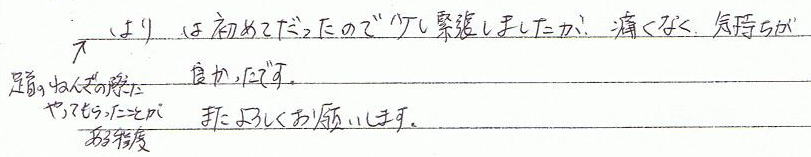 はり は初めてだったので少し緊張しましたが、痛くなく、気持ちが
良かったです。
またよろしくお願いします。
↑
足首のねんざの際に
やってもらったことが
ある程度